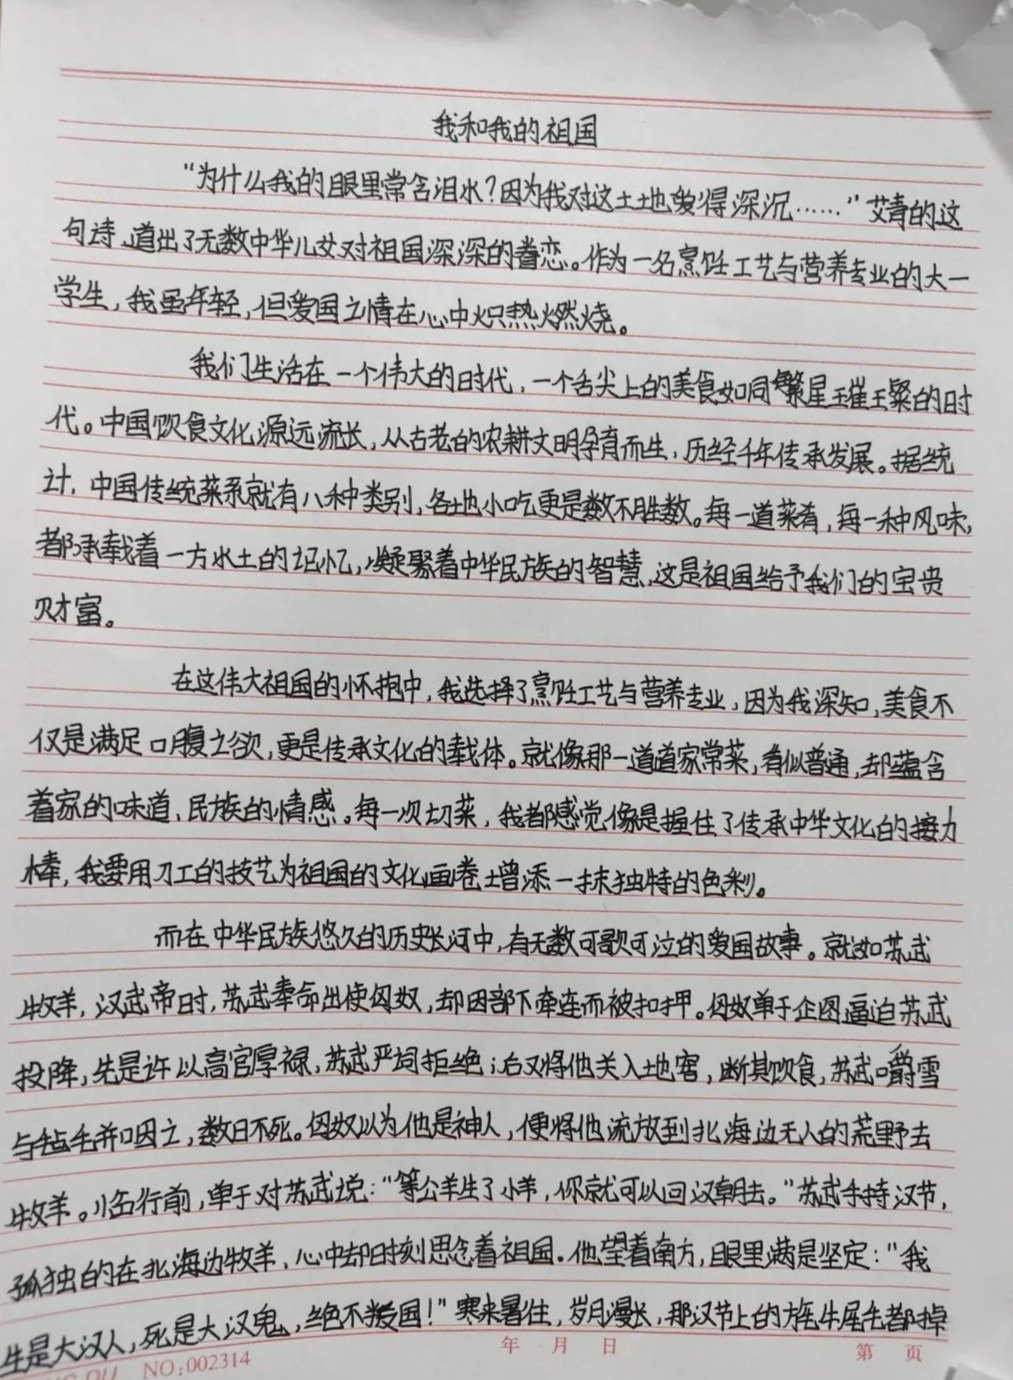 我和我的祖国
“为什么我的眼里常含泪水?因为我对这土地爱得深沉……”艾青的这
句诗,道出了无数中华儿女对祖国深深的眷恋。作为一名烹饪工艺与营养专业的大一
学生,我虽年轻,但爱国之情在心中炽热燃烧。
我们生活在一个伟大的时代,一个舌尖上的美食如同繁星璀璨的时
代。中国饮食文化源远流长,从古老的农耕文明孕育而生,历经千年传承发展。据统
计,中国传统菜系就有八种类别,各地小吃更是数不胜数。每一道菜肴,每一种风味,
都承载着一方水土的记忆,凝聚着中华民族的智慧,这是祖国给予我们的宝贵
财富。
在这伟大祖国的怀抱中,我选择了烹饪工艺与营养专业,因为我深知,美食不
仅是满足口腹之欲,更是传承文化的载体。就像那一道道家常菜,看似普通,却蕴含
着家的味道、民族的情感。每一次切菜,我都感觉像是握住了传承中华文化的接力
棒,我要用刀工的技艺为祖国的文化画卷增添一抹独特的色彩。
而在中华民族悠久的历史长河中,有无数可歌可泣的爱国故事。就如苏武
牧羊,汉武帝时,苏武奉命出使匈奴,却因部下牵连而被扣押。匈奴单于企图逼迫苏武
投降,先是许以高官厚禄,苏武严词拒绝;后又将他关入地窖,断其饮食,苏武嚼雪
与毡毛并咽之,数日不死。匈奴以为他是神人,便将他流放到北海边无人的荒野去
牧羊。临行前,单于对苏武说:“等公羊生了小羊,你就可以回汉朝去。”苏武手持汉节,
孤独的在北海边牧羊,心中却时刻思念着祖国。他望着南方,眼里满是坚定:“我
生是大汉人,死是大汉鬼,绝不叛国!”寒来暑往,岁月漫长,那汉节上的旄牛尾毛都掉
NO:002314
年 月 日
第 页